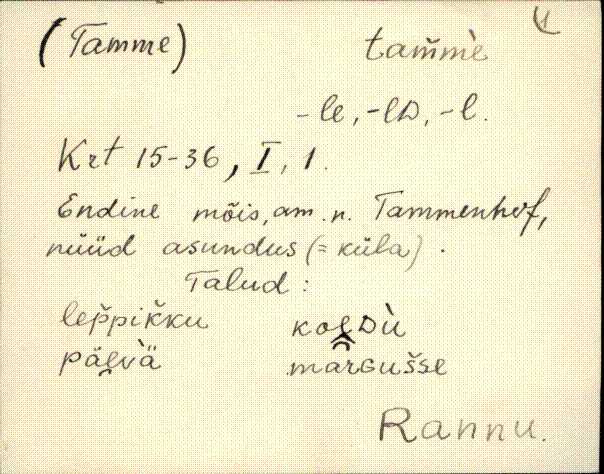 (Tamme) tam̆mè
-le, -lD, -l.
Krt 15-36, I, 1.
Endine mõis, am. n. Tammenhof,
nüüd asundus (= küla).
Talud:
lep̆pik̆ku koeDù
päevà̈ märGus̆se
Rannu.